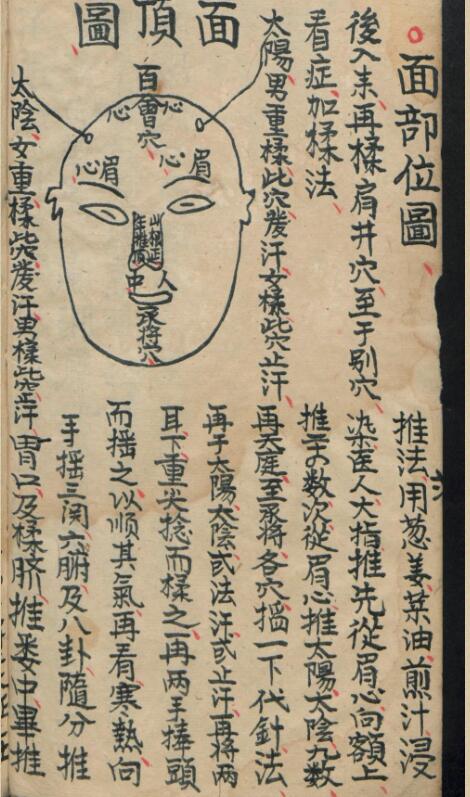 面部位圖
後入耒再揉肩井穴至于别穴
看症加揉法
太陽男重揉此穴發汗女揉此穴止汗
面頂圖
百會穴
心
心
眉心
眉心
人中
承将穴
太陰女重揉此穴發汗男揉此穴止汗
推法用葱姜菜油煎汁浸
染医人大指推先從眉心向額上
推数次從眉心推太陽太陰九数
再天庭至承将各穴搯一下代針法
再于太陽太陰或法汗或止汗再將两
耳下重尖捻而揉之再两手捧頭
而揺之以順其氣再看寒熱向
手揺三関六腑及八卦隨分推
胃口及揉脐推委中畢推